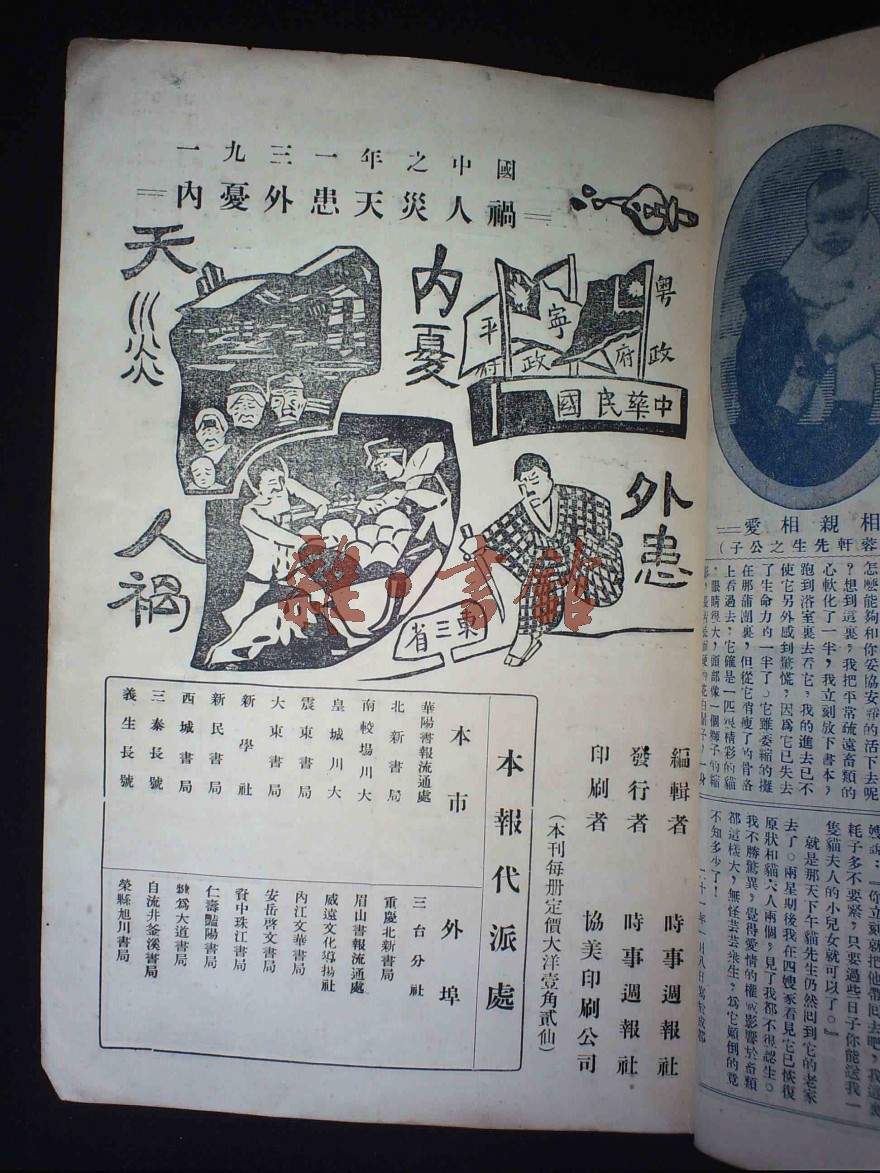 一九三一年之中國
内憂外患天災人禍
天災
内憂
粤政府
寧政府
平
中華民國
外患
東三省
人禍
雜·書館
編輯者 時事週報社
發行者 時事週報社
印刷者 協美印刷公司
(本刊每册定價大洋壹角貳仙)
本報代派處
本市
華陽書報流通處
北新書局
南較場川大
皇城川大
震東書局
大東書局
新學社
新民書局
西城書局
三泰長號
義生長號
外埠
三台分社
重慶北新書局
眉山書報流通處
威遠文化導揚社
内江文華書局
安岳啓文書局
資中珠江書局
仁壽豔陽書局
犍爲大道書局
自流井釜溪書局
榮縣旭川書局
相親相愛
蓉軒先生之公子)
怎麽能夠和你妥協安靜的活下去呢
?想到這裏,我把平常疏遠畜類的
心軟化了一半,我立刻放下書本,
跑到浴室裏去看它,我的進去已不
使它另外感到驚慌,因爲它已失去
了生命力的一半了。它雖委縮的攤
在那蒲團裏,但從它瘦了的骨骼
上看過去,它確是一匹很精彩的貓
,眼睛很大,頭部像一個獅子的縮
嫂說:「你立刻就把他帶回去吧,我這裏
耗子多不要緊,只要過些日子你能送我一
隻貓夫人的小兒女就可以了。』
就是那天下午貓先生仍然回到它的老家
去了。兩星期後我在四嫂家看見它已恢復
原狀和貓夫人兩個,見了我都不很認生。
我不勝驚異,覺得愛情的權威影響於畜類
都這樣大,無怪芸芸衆生,爲它顛倒的竟
不知多少了!